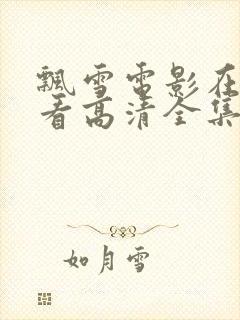 飘雪电影在
看高清全集
如月雪